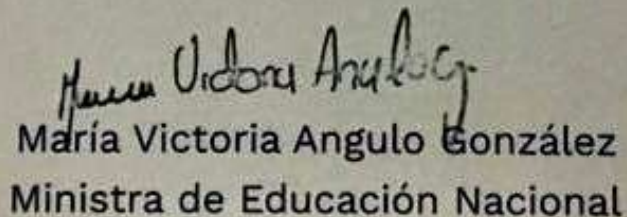 María Victoria Angulo G.
María Victoria Angulo González
Ministra de Educación Nacional